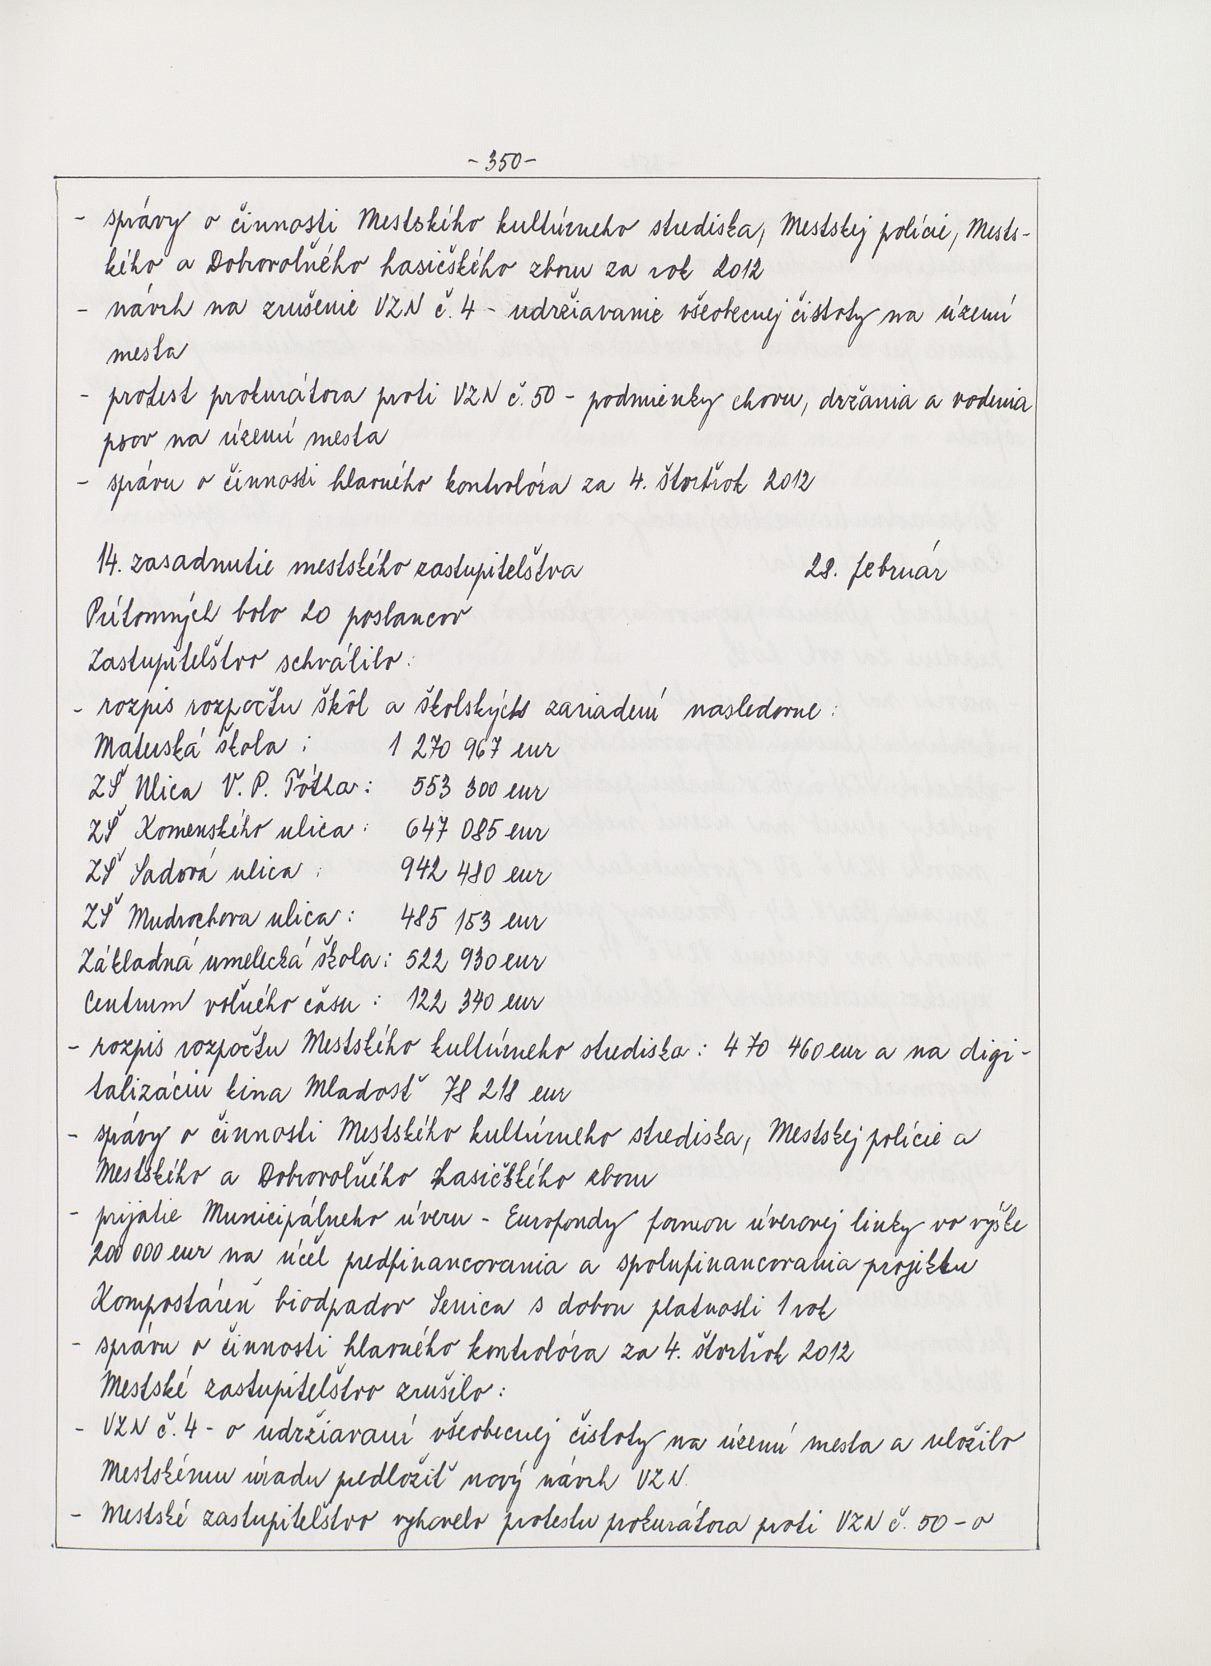 -350-
- správy o činnosti Mestského kultúrneho strediska, Mestskej polície, Mests-
kého a Dobrovoľného hasičského zboru za rok 2012
- návrh na zrušenie VZN č. 4 - udržiavanie všeobecnej čistoty na území
mesta
- protest prokurátora proti VZN č. 50 - podmienky chovu, držania a vodenia
psov na území mesta
- správu o činnosti hlavného kontrolóra za 4. štvrťrok 2012
14. zasadnutie mestského zastupiteľstva 28. február
Prítomných bolo 20 poslancov
Zastupiteľstvo schválilo:
- rozpis rozpočtu škôl a školských zariadení nasledovne:
Materská škola : 1 270 967 eur
ZŠ Ulica V. P. Tótha: 553 300 eur
ZŠ Komenského ulica: 647 085 eur
ZŠ Sadová ulica : 942 480 eur
ZŠ Mudrochova ulica: 485 153 eur
Základná umelecká škola: 522 930 eur
Centrum voľného času : 122 340 eur
- rozpis rozpočtu Mestského kultúrneho strediska: 470 460 eur a na digi-
talizáciu kina Mladosť 78 218 eur
- správy o činnosti Mestského kultúrneho strediska, Mestskej polície a
Mestského a Dobrovoľného hasičského zboru
- prijatie Municipálneho úveru - Eurofondy formou úverovej linky vo výške
200 000 eur na účel predfinancovania a spolufinancovania projektu
Kompostáreň biodpadov Senica s dobou platnosti 1 rok
- správu o činnosti hlavného kontrolóra za 4. štvrťrok 2012
Mestské zastupiteľstvo zrušilo:
- VZN č. 4 - o udržiavaní všeobecnej čistoty na území mesta a uložilo
Mestskému úradu predložiť nový návrh VZN.
- Mestské zastupiteľstvo vyhovelo protestu prokurátora proti VZN č. 50 - o